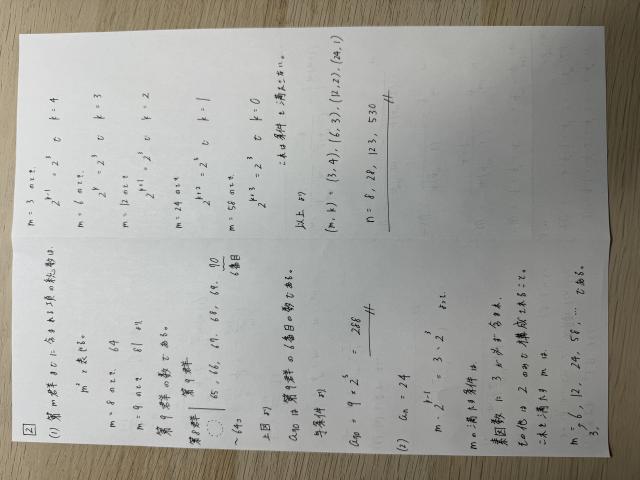 2
(1) 第m群までに含まれる項の総数は、
m² と表せる。
m = 8 のとき 64
m = 9 のとき 81 より
第9群の数である。
第8群 第9群
65, 66, 67, 68, 69, 70
〜64コ
6番目
上図より
a₇₀ は第9群の6番目の数である。
与条件より
a₇₀ = 9 × 2⁵ = 288
(2) aₙ = 24
m・2^(k-1) = 3・2³ より
mの満たす条件は
素因数に3が必ず含まれ、
その他は2のみで構成されること。
これを満たすmは
m = 3, 6, 12, 24, 58, … である。
m = 3 のとき
2^(k-1) = 2³ で k = 4
m = 6 のとき
2^k = 2³ で k = 3
m = 12 のとき
2^(k+1) = 2³ で k = 2
m = 24 のとき
2^(k+2) = 2³ で k = 1
m = 58 のとき
2^(k+3) = 2³ で k = 0
これは条件を満たさない。
以上より
(m, k) = (3, 4), (6, 3), (12, 2), (24, 1)
n = 8, 28, 123, 530